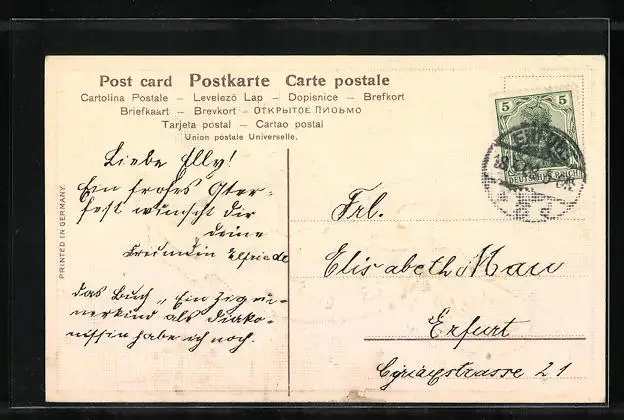 Post card Postkarte Carte postale
Cartolina Postale – Levelező Lap – Dopisnice – Brefkort
Briefkaart – Brevkort – ОТКРЫТОЕ ПИСЬМО
Tarjeta postal – Cartao postal
Union postale Universelle.
PRINTED IN GERMANY.
Liebe Elly!
Ein frohes Oster-
fest wünscht dir
deine
Freundin Elfriede
das Buch „Ein Zigeu-
nerkind als Diako-
nissin habe ich noch.
5 5
DEUTSCHES REICH
Frl.
Elisabeth Mau
Erfurt
Cyriaxstrasse 21